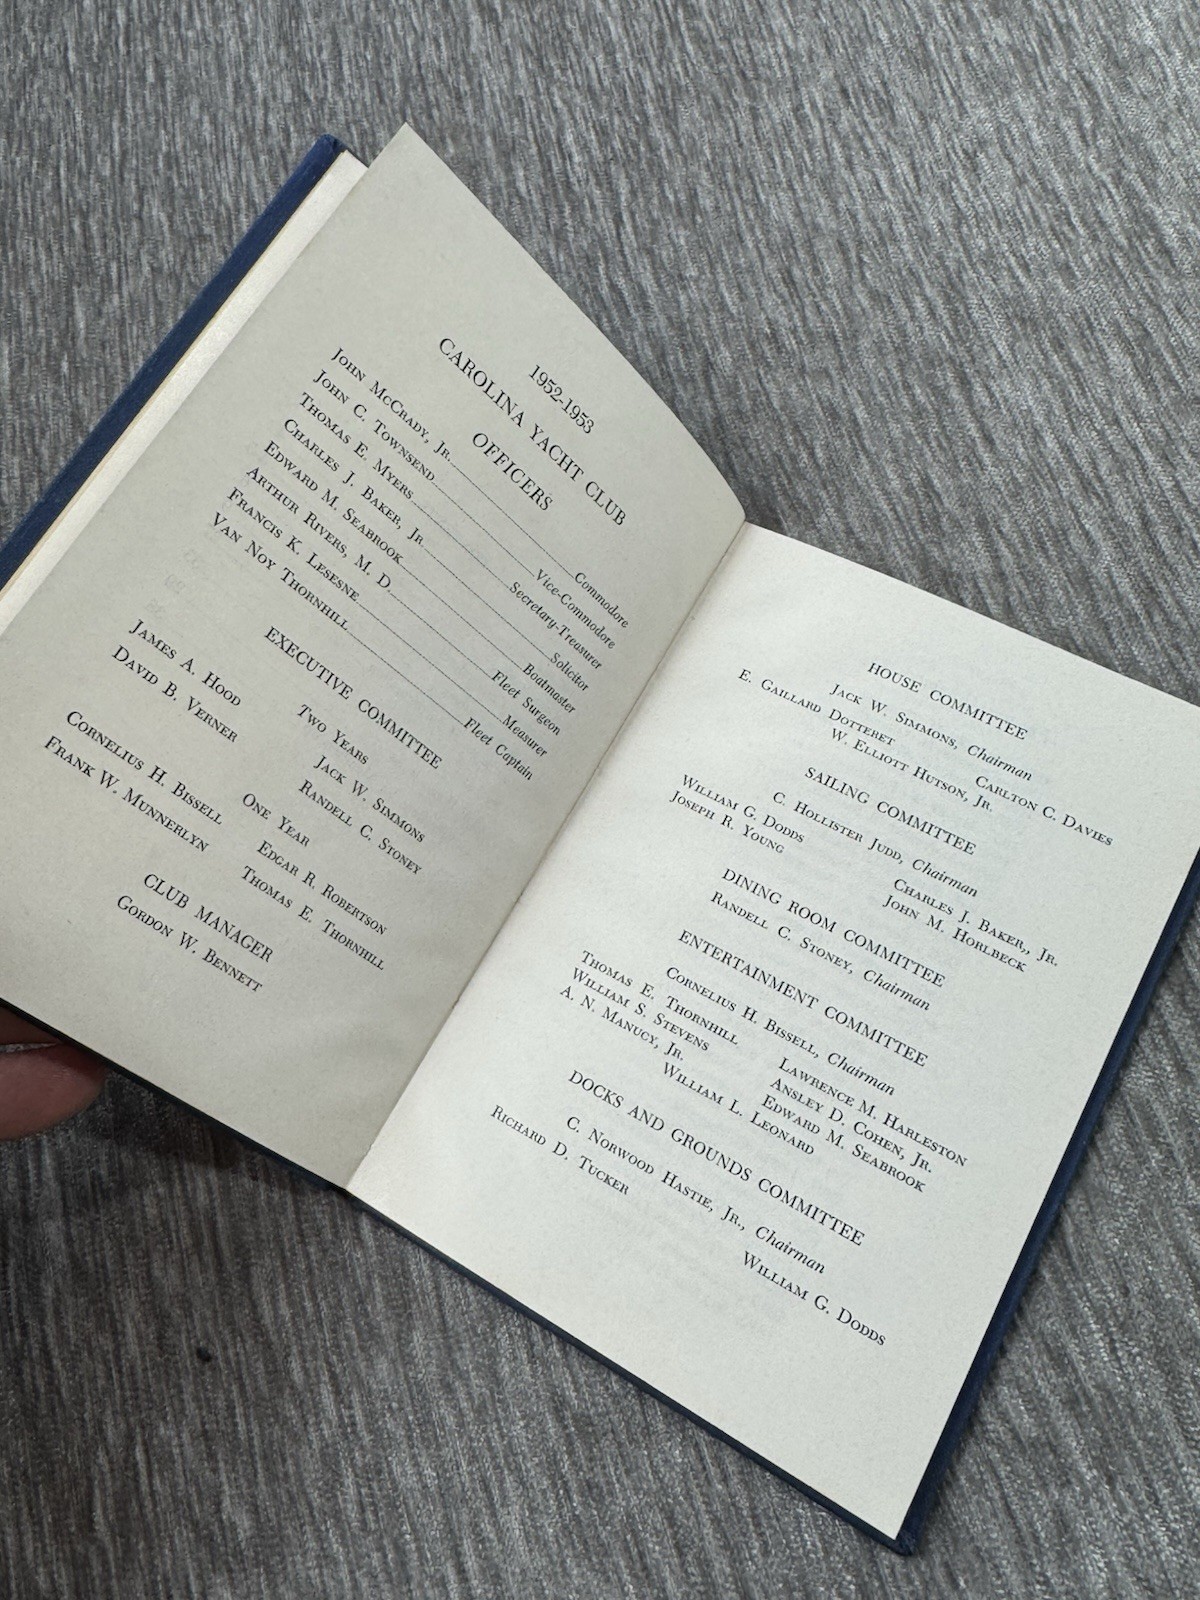 1952-1953
CAROLINA YACHT CLUB
OFFICERS
John McCrady, Jr. Commodore
John C. Townsend Vice-Commodore
Thomas E. Myers Secretary-Treasurer
Charles J. Baker, Jr. Solicitor
Edward M. Seabrook Boatmaster
Arthur Rivers, M. D. Fleet Surgeon
Francis K. Lesesne Measurer
Van Noy Thornhill Fleet Captain
EXECUTIVE COMMITTEE
Two Years
James A. Hood Jack W. Simmons
David B. Verner Randell C. Stoney
One Year
Cornelius H. Bissell Edgar R. Robertson
Frank W. Munnerlyn Thomas E. Thornhill
CLUB MANAGER
Gordon W. Bennett
HOUSE COMMITTEE
Jack W. Simmons, Chairman
E. Gaillard Dotteret Carlton C. Davies
W. Elliott Hutson, Jr.
SAILING COMMITTEE
C. Hollister Judd, Chairman
William G. Dodds Charles J. Baker,, Jr.
Joseph R. Young John M. Horlbeck
DINING ROOM COMMITTEE
Randell C. Stoney, Chairman
ENTERTAINMENT COMMITTEE
Cornelius H. Bissell, Chairman
Thomas E. Thornhill Lawrence M. Harleston
William S. Stevens Ansley D. Cohen, Jr.
A. N. Manucy, Jr. Edward M. Seabrook
William L. Leonard
DOCKS AND GROUNDS COMMITTEE
C. Norwood Hastie, Jr., Chairman
Richard D. Tucker William G. Dodds